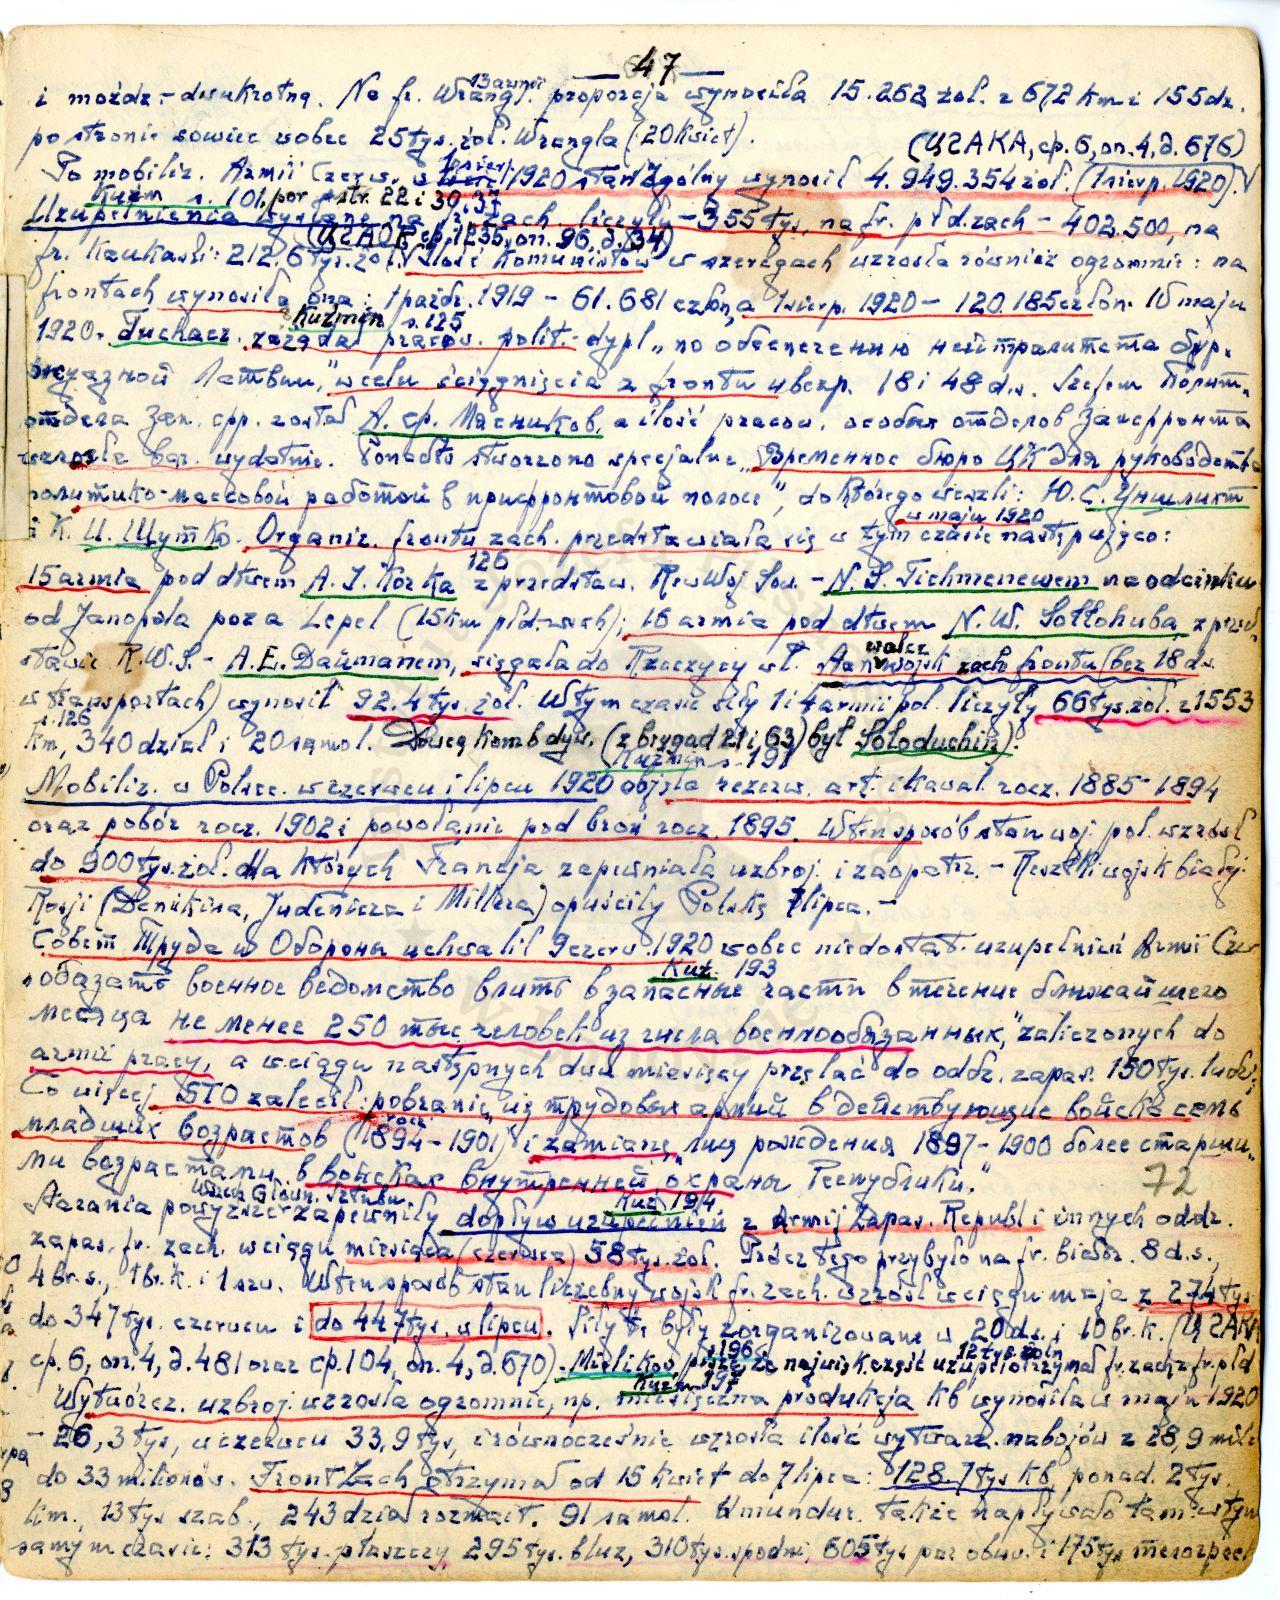 — 47 —
i moźdz.- dwukrotną. Na fr. Wrang. 13 armii proporcja wynosiła 15.262 żoł. z 672 km i 155 dz.
po stronie sowiec. wobec 25 tys. żoł. Wrangla (20 kwiet). (ЦГАКА, ср. 6, оп. 4, д. 676)
Po mobiliz. Armii Czerw. 1920 stan ogólny wynosił 4.949.354 żoł. (1 sierp. 1920).
Kuźm s. 101, por str. 22 i 30, 37
Uzupełnienia wysłane na fr. zach. liczyły - 355 tys., na fr. płd. zach - 402.500, na
(ЦГАОР, ср. 1235, оп. 96, д. 834)
fr. Kaukaski: 212.6 tys. żoł. Ilość komunistów w szeregach wzrosła również ogromnie: na
frontach wynosiła ona: 1 paźdz. 1919 - 61.681 człon, a 1 sierp. 1920 - 120.185 człon. 10 maju
Kuźmin s. 125
1920 r. Tuchacz. zażądał pracow. polit.- dypl „по обеспечению нейтралитета бур-
жуазной Латвии," w celu ściągnięcia z frontu ubezp. 18 i 48 d.s. Szefem Полит-
отдела Зап. фр. został А. ф. Мясников, a ilość pracow. особых отделов Запфронта
wzrosła bar. wydatnie. Ponadto stworzono specjalne „Временное бюро ЦК для руководства
политико-массовой работой в прифронтовой полосе", do którego weszli: Ю. С. Уншлихт
w maju 1920
i К. И. Шутко. Organiz. frontu zach. przedstawiała się w tym czasie następująco:
126
15 armia pod dtwem A. I. Korka z przedstaw. RewWojSow. - N. S. Tichmieniewem na odcinku
od Janopola poza Lepel (15 km płd.-wsch); 16 armia pod dtwem N. W. Sołłohuba, z przed-
walcz
stawic. R.W.S. - A. E. Daumanem, sięgała do Rzeczycy wł. Stan wojsk zach. frontu (bez 18 d.s.
w transportach) wynosił 92.4 tys. żoł. W tym czasie siły 1 i 4 armii pol. liczyły 66 tys. żoł. z 1553
s. 126
km, 340 dział i 20 samol. Dowcą komb dyw. (z brygad 21 i 63) był Sołoduchin).
Kuźmin s. 191
Mobiliz. w Polsce w czerwcu i lipcu 1920 objęła rezerw. art. i kawal. rocz. 1885-1894
oraz pobór rocz. 1902 i powołanie pod broń rocz. 1895. W ten sposób stan woj. pol. wzrósł
do 900 tys. żoł. dla których Francja zapewniała uzbroj. i zaopatrz. - Resztki wojsk białej
Rosji (Denikina, Judenicza i Millera) opuściły Polskę 7 lipca. -
Совет Труда и Обороны uchwalił 9 czerw. 1920 wobec niedostat. uzupełnień Armii Czer
Kuź. 193
„обязать военное ведомство влить в запасные части в течение ближайшего
месяца не менее 250 тыс. человек из числа военнообязанных," zaliczonych do
armii pracy, a w ciągu następnych dwu miesięcy przesłać do oddz. zapas. 150 tys. ludzi.
Co więcej STO zalecił: pobranie „из трудовых армий в действующие войска семь
младших возрастов (rocz 1894-1901)" i zamianę „лиц рождения 1897-1900 более старши-
ми возрастами в войсках внутренней охраны Республики."
72
Wszech Główn. Sztabu Kuź. 194
Starania powyższe zapewniły dopływ uzupełnień z Armij Zapas. Republ i innych oddz.
zapas. fr. zach. w ciągu miesiąca (czerwca) 58 tys. żoł. Prócz tego przybyło na fr. białor. 8 d.s.,
4 br. s., 1 br. k. i W ten sposób stan liczebny wojsk fr. zach. wzrósł w ciągu maja z 274 tys.
do 347 tys. czerwcu i do 447 tys. w lipcu. Siły te były zorganizowane w 20 d.s. i 10 br. k. (ЦГАКА
s. 196 12 tys. żoln
ср. 6, оп. 4, д. 481 oraz ср. 104, оп. 4, д. 670). Mielikow że najwięk. część uzupeł otrzymał fr. zach z fr. płd
Kuźm 197
Wytwórcz. uzbroj. wzrosła ogromnie, np. miesięczna produkcja kb wynosiła w maju 1920
- 26,3 tys, w czerwcu 33,9 tys, i równocześnie wzrosła ilość wytwarz. nabojów z 28,9 milio
do 33 milionów. Front Zach otrzymał od 15 kwiet do 7 lipca: 128.7 tys kb, ponad. 2 tys.
km., 13 tys szab., 243 dział rozmait. 91 samol. Umundur. także napływało tam: w tym
samym czasie: 313 tys. płaszczy, 295 tys. bluz, 310 tys. spodni, 605 tys par obuw. i 175 tys